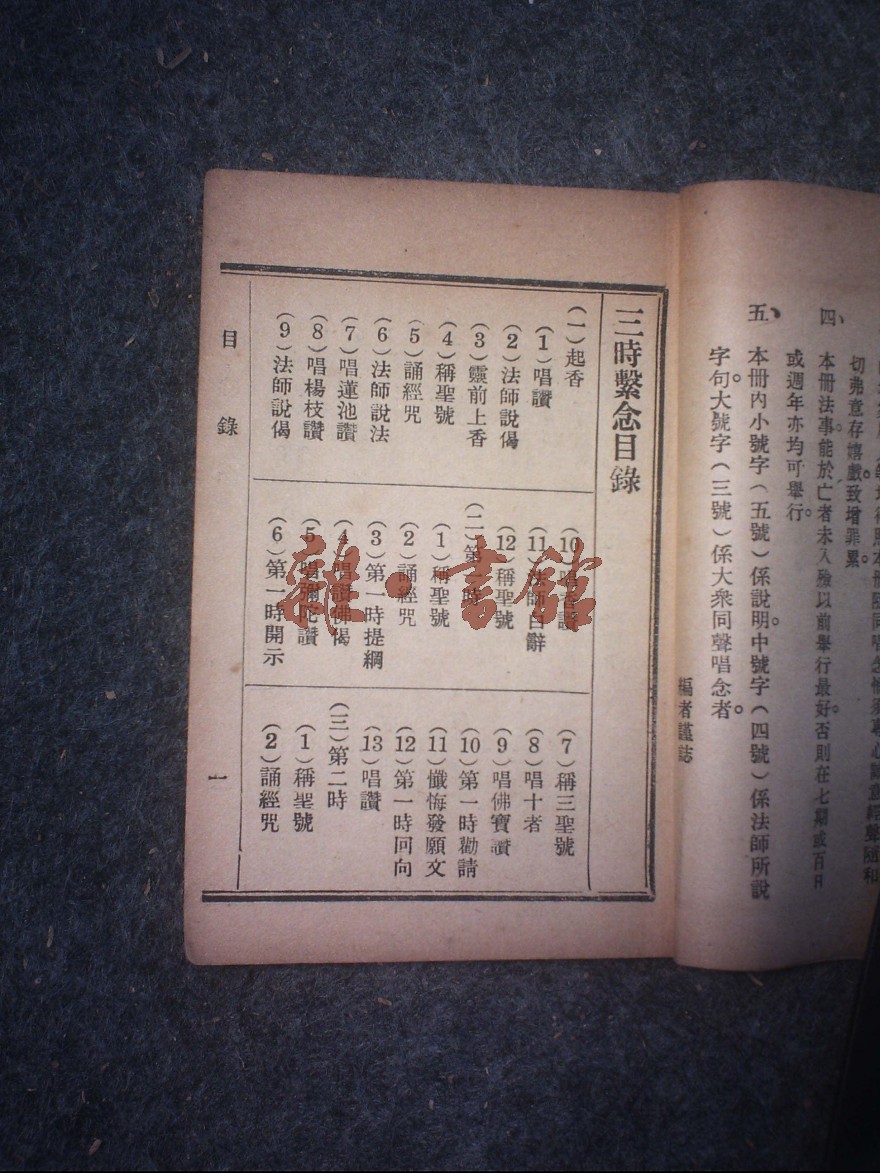 切弗意存嬉戲致增罪累。
四、本册法事能於亡者未入殮以前舉行最好。否則在七期或百日
或週年亦均可舉行。
五、本册內小號字(五號)係說明。中號字(四號)係法師所說
字句。大號字(三號)係大衆同聲唱念者。
編者謹誌
三時繫念目錄
(一)起香
(1)唱讚
(2)法師說偈
(3)靈前上香
(4)稱聖號
(5)誦經咒
(6)法師說法
(7)唱蓮池讚
(8)唱楊枝讚
(9)法師說偈
(10)唱香讚
(11)法師白辭
(12)稱聖號
(二)第一時
(1)稱聖號
(2)誦經咒
(3)第一時提綱
(4)唱讚佛偈
(5)唱彌陀讚
(6)第一時開示
(7)稱三聖號
(8)唱十者
(9)唱佛寶讚
(10)第一時勸請
(11)懺悔發願文
(12)第一時回向
(13)唱讚
(三)第二時
(1)稱聖號
(2)誦經咒
目錄
一
雜·書館